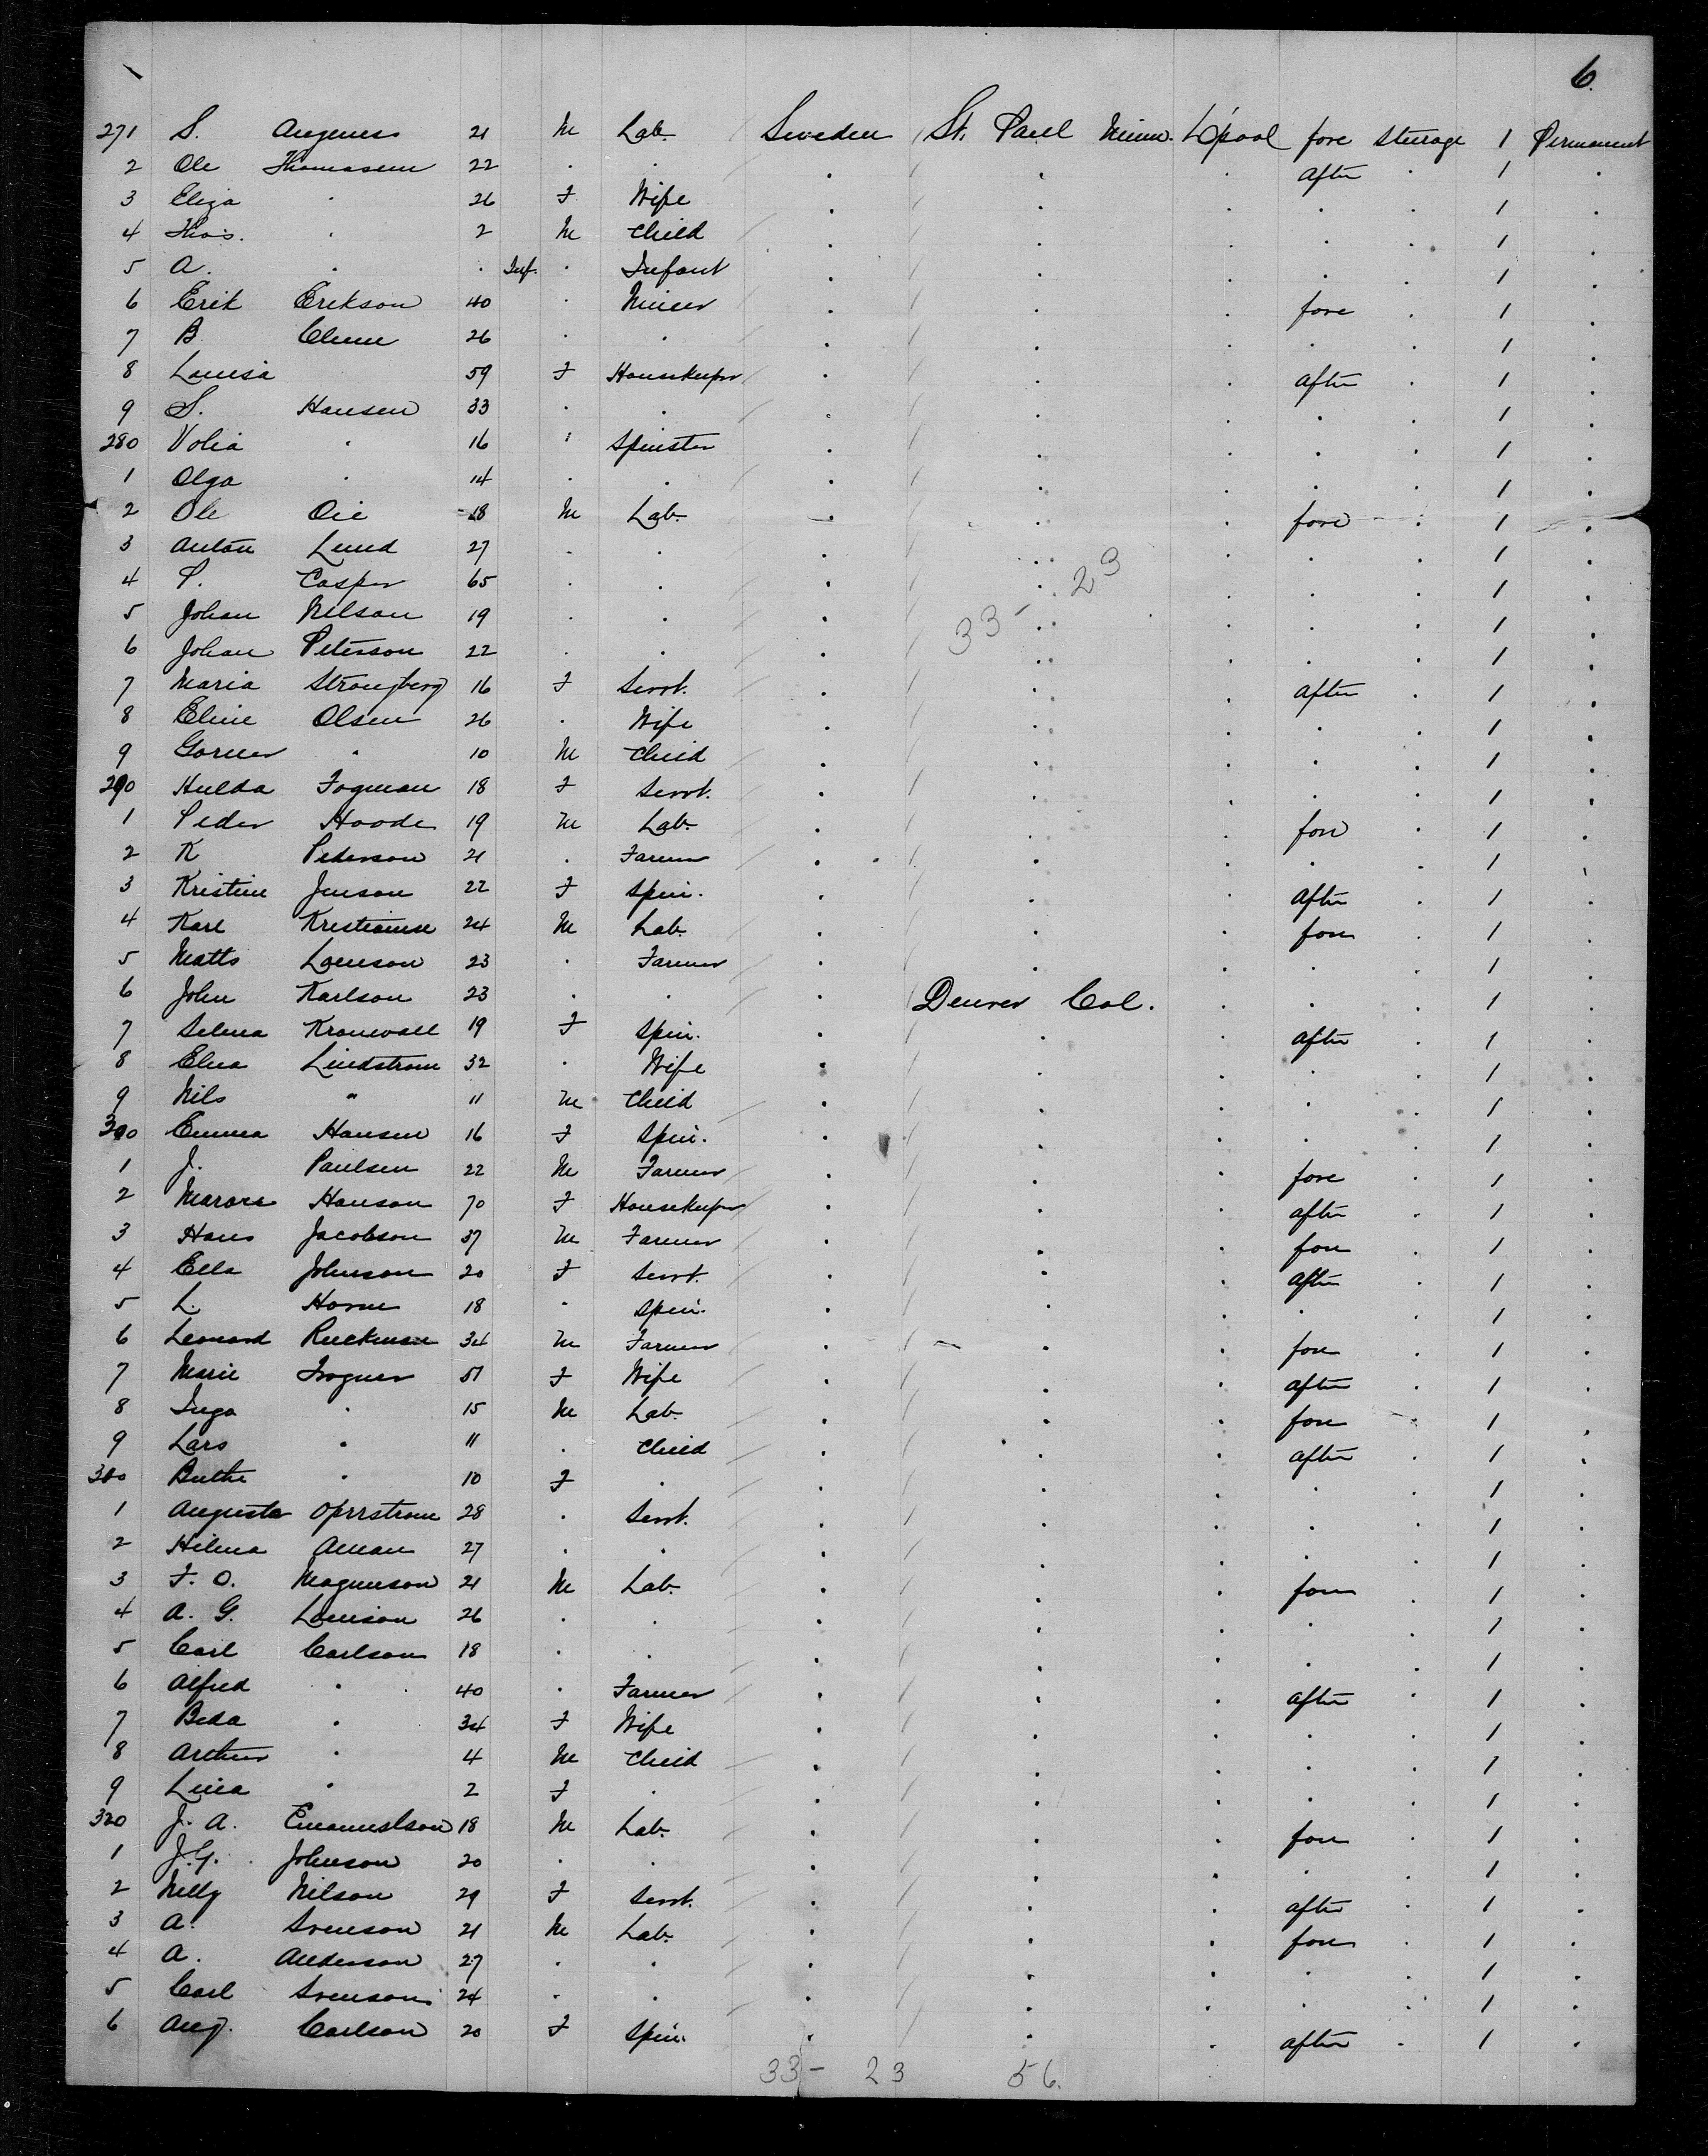 6.
271 S. Augenes 21 M Lab. Sweden St. Paul Minn. L'pool fore Steerage 1 Permanent
2 Ole Thomasen 22 . . . . . after . 1 .
3 Eliza . 26 F Wife . . . . . 1 .
4 Thos. . 2 M Child . . . . . 1 .
5 A. . . Inf. . Infant . . . . . 1 .
6 Erik Erikson 40 . Miner . . . fore . 1 .
7 B 26 . . . . . . . 1 .
8 Louisa 59 F Housekeeper . . . after . 1 .
9 S. Hansen 33 . . . . . . . 1 .
280 Volia . 16 . Spinster . . . . . 1 .
1 Olga . 14 . . . . . . . 1 .
2 Ole Oie 18 M Lab. . . . fore . 1 .
3 Anton Lund 27 . . . . . . . 1 .
4 P. Casper 65 . . . . . . . 1 .
33 - 23
5 Johan Nilson 19 . . . . . . . 1 .
6 Johan Peterson 22 . . . . . . . 1 .
7 Maria Strongberg 16 F Servt. . . . after . 1 .
8 Eline Olsen 26 . Wife . . . . . 1 .
9 . 10 M Child . . . . . 1 .
290 Hulda Fogman 18 F Servt. . . . . . 1 .
1 Peder Hoode 19 M Lab. . . . fore . 1 .
2 K Pederson 21 . Farmer . . . . . 1 .
3 Kristine Jenson 22 F Spin. . . . after . 1 .
4 Karl Kristianse 24 M Lab. . . . fore . 1 .
5 Matts Louison 23 . Farmer . . . . . 1 .
6 John Karlson 23 . . . Denver Col. . . . 1 .
7 Selma Kronwall 19 F Spin. . . . after . 1 .
8 Elna Lindstrom 32 . Wife . . . . . 1 .
9 Nils " 11 M Child . . . . . 1 .
300 Emma Hansen 16 F Spin. . . . . . 1 .
1 J. Paulsen 22 M Farmer . . . fore . 1 .
2 Hanson 70 F Housekeeper . . . after . 1 .
3 Hans Jacobson 37 M Farmer . . . fore . 1 .
4 Ella Johnson 20 F Servt. . . . after . 1 .
5 L. Horne 18 . Spin. . . . . . 1 .
6 Leonard 34 M Farmer . . . fore . 1 .
7 Marie 51 F Wife . . . after . 1 .
8 Inga . 15 M Lab. . . . fore . 1 .
9 Lars . 11 . Child . . . after . 1 .
310 . 10 F . . . . . . 1 .
1 Augusta Oprrstrom 28 . Servt. . . . . . 1 .
2 Hilma Aman 27 . . . . . . . 1 .
3 F. O. Magnuson 21 M Lab. . . . fore . 1 .
4 A. G. Louison 26 . . . . . . . 1 .
5 Carl Carlson 18 . . . . . . . 1 .
6 Alfred . 40 . Farmer . . . after . 1 .
7 Beda . 34 F Wife . . . . . 1 .
8 Arthur . 4 M Child . . . . . 1 .
9 Lina . 2 F . . . . . . 1 .
320 J. A. Emanuelson 18 M Lab. . . . fore . 1 .
1 J. G. Johnson 20 . . . . . . . 1 .
2 Nelly Nilson 29 F Servt. . . . after . 1 .
3 A. Svenson 21 M Lab. . . . fore . 1 .
4 A. Anderson 27 . . . . . . . 1 .
5 Carl Svenson 24 . . . . . . . 1 .
6 Aug. Carlson 20 F Spin. . . . after . 1
33 - 23 56.